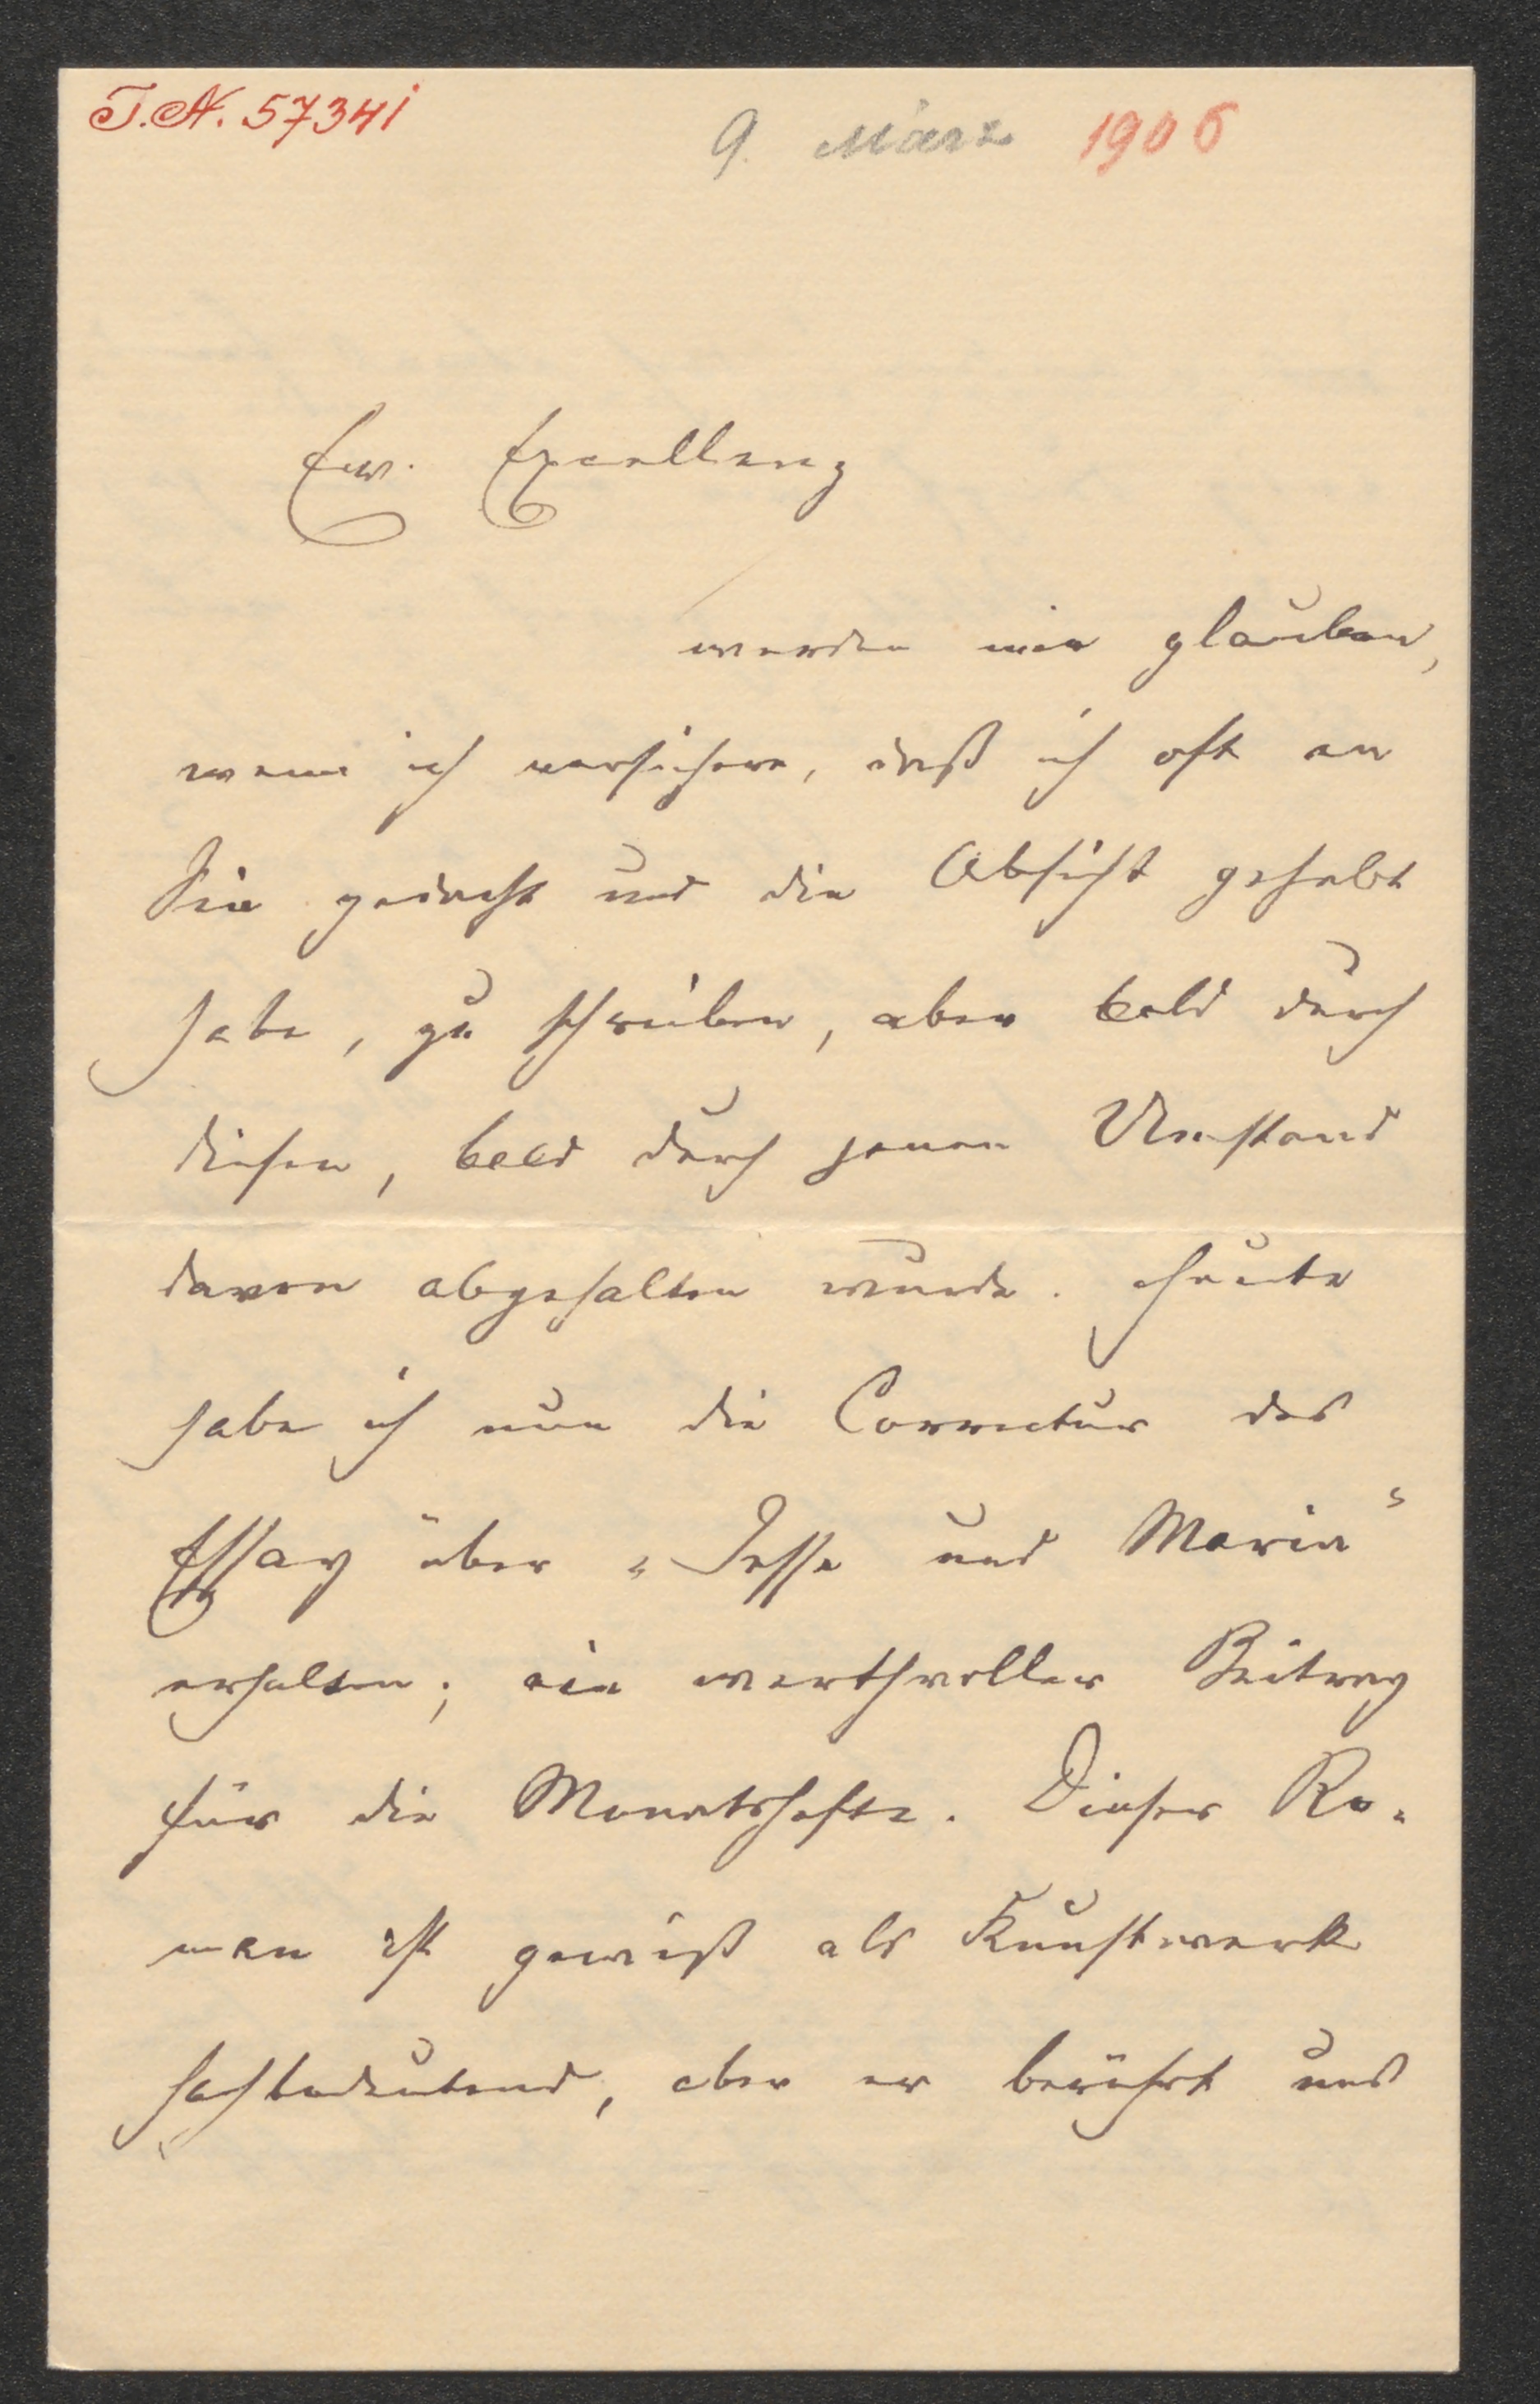 I.N. 57341
9. März 1906
Ew. Excellenz
werden mir glauben,
wenn ich versichere, daß ich oft an
Sie gedacht und die Absicht gehabt
habe, zu schreiben, aber bald durch
diesen, bald durch jenen Umstand
davon abgehalten wurde. Heute
habe ich nun die Correctur des
Essay über „Jesse und Maria“
erhalten; ein werthvoller Beitrag
für die Monatshefte. Dieser Ro-
man ist gewiß als Kunstwerk
hochbedeutend, aber er berührt uns